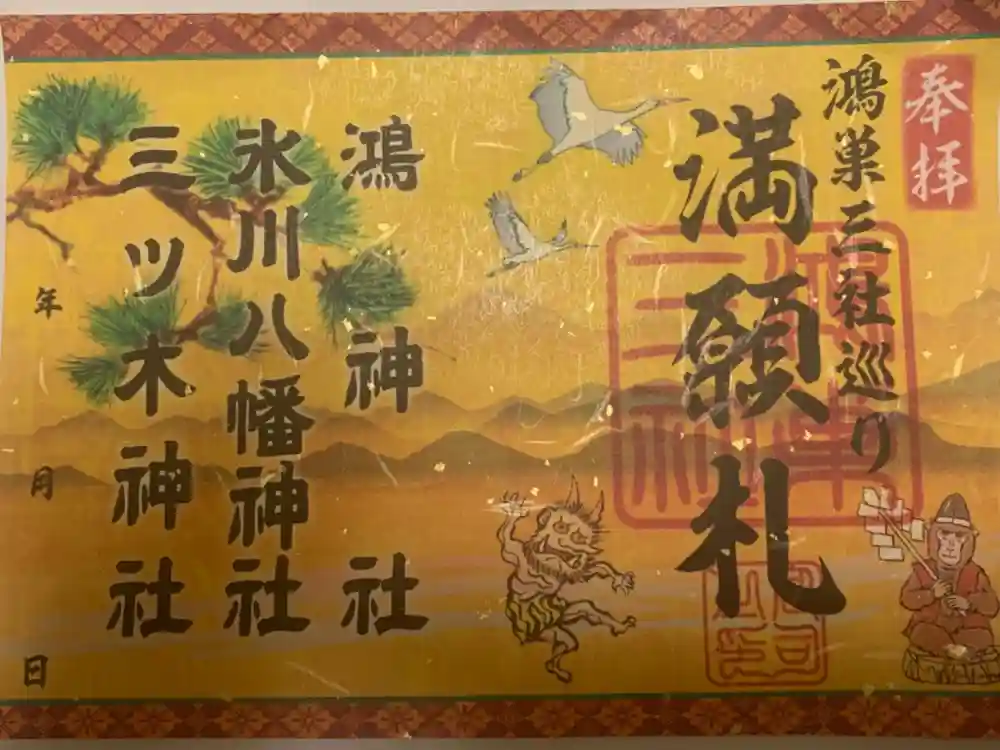 奉拝
鴻巣三社巡り
満願札
鴻神社
氷川八幡神社
三ツ木神社
年月日
鴻巣三社